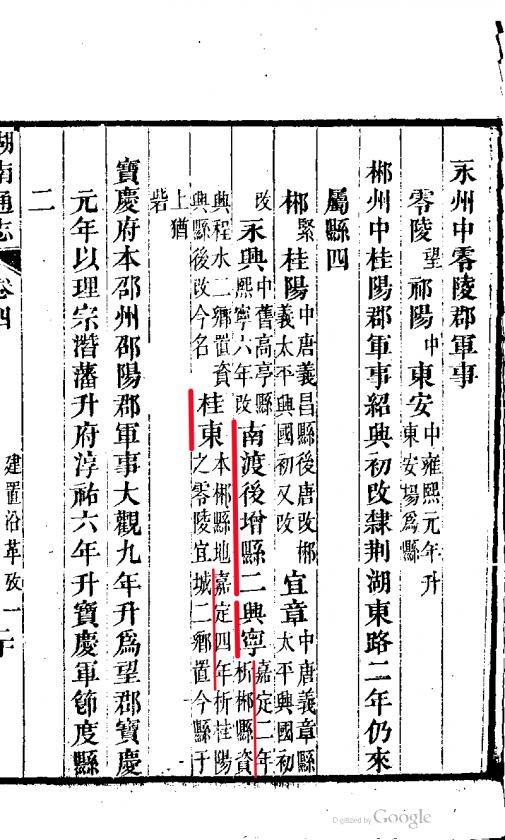 永州中零陵郡軍事
零陵望祁陽中東安中雍熙元年升東安場爲縣
郴州中桂陽郡軍事紹興初改隸荆湖東路二年仍來
屬縣四
郴緊桂陽中唐義昌縣後唐改郴義太平興國初又改宜章中唐義章縣太平興國初
改永興中舊高亭縣熙寧六年改南渡後增縣二興寧嘉定二年析郴縣資
興程水二鄉置資興縣後改今名桂東本郴縣地嘉定四年析桂陽之零陵宜城二鄉置今縣于
上猶
砦
寶慶府本邵州邵陽郡軍事大觀九年升爲望郡寶慶
元年以理宗潛藩升府淳祐六年升寶慶軍節度縣
二
湖南通志 卷四 建置沿革攷一
Digitized by Google